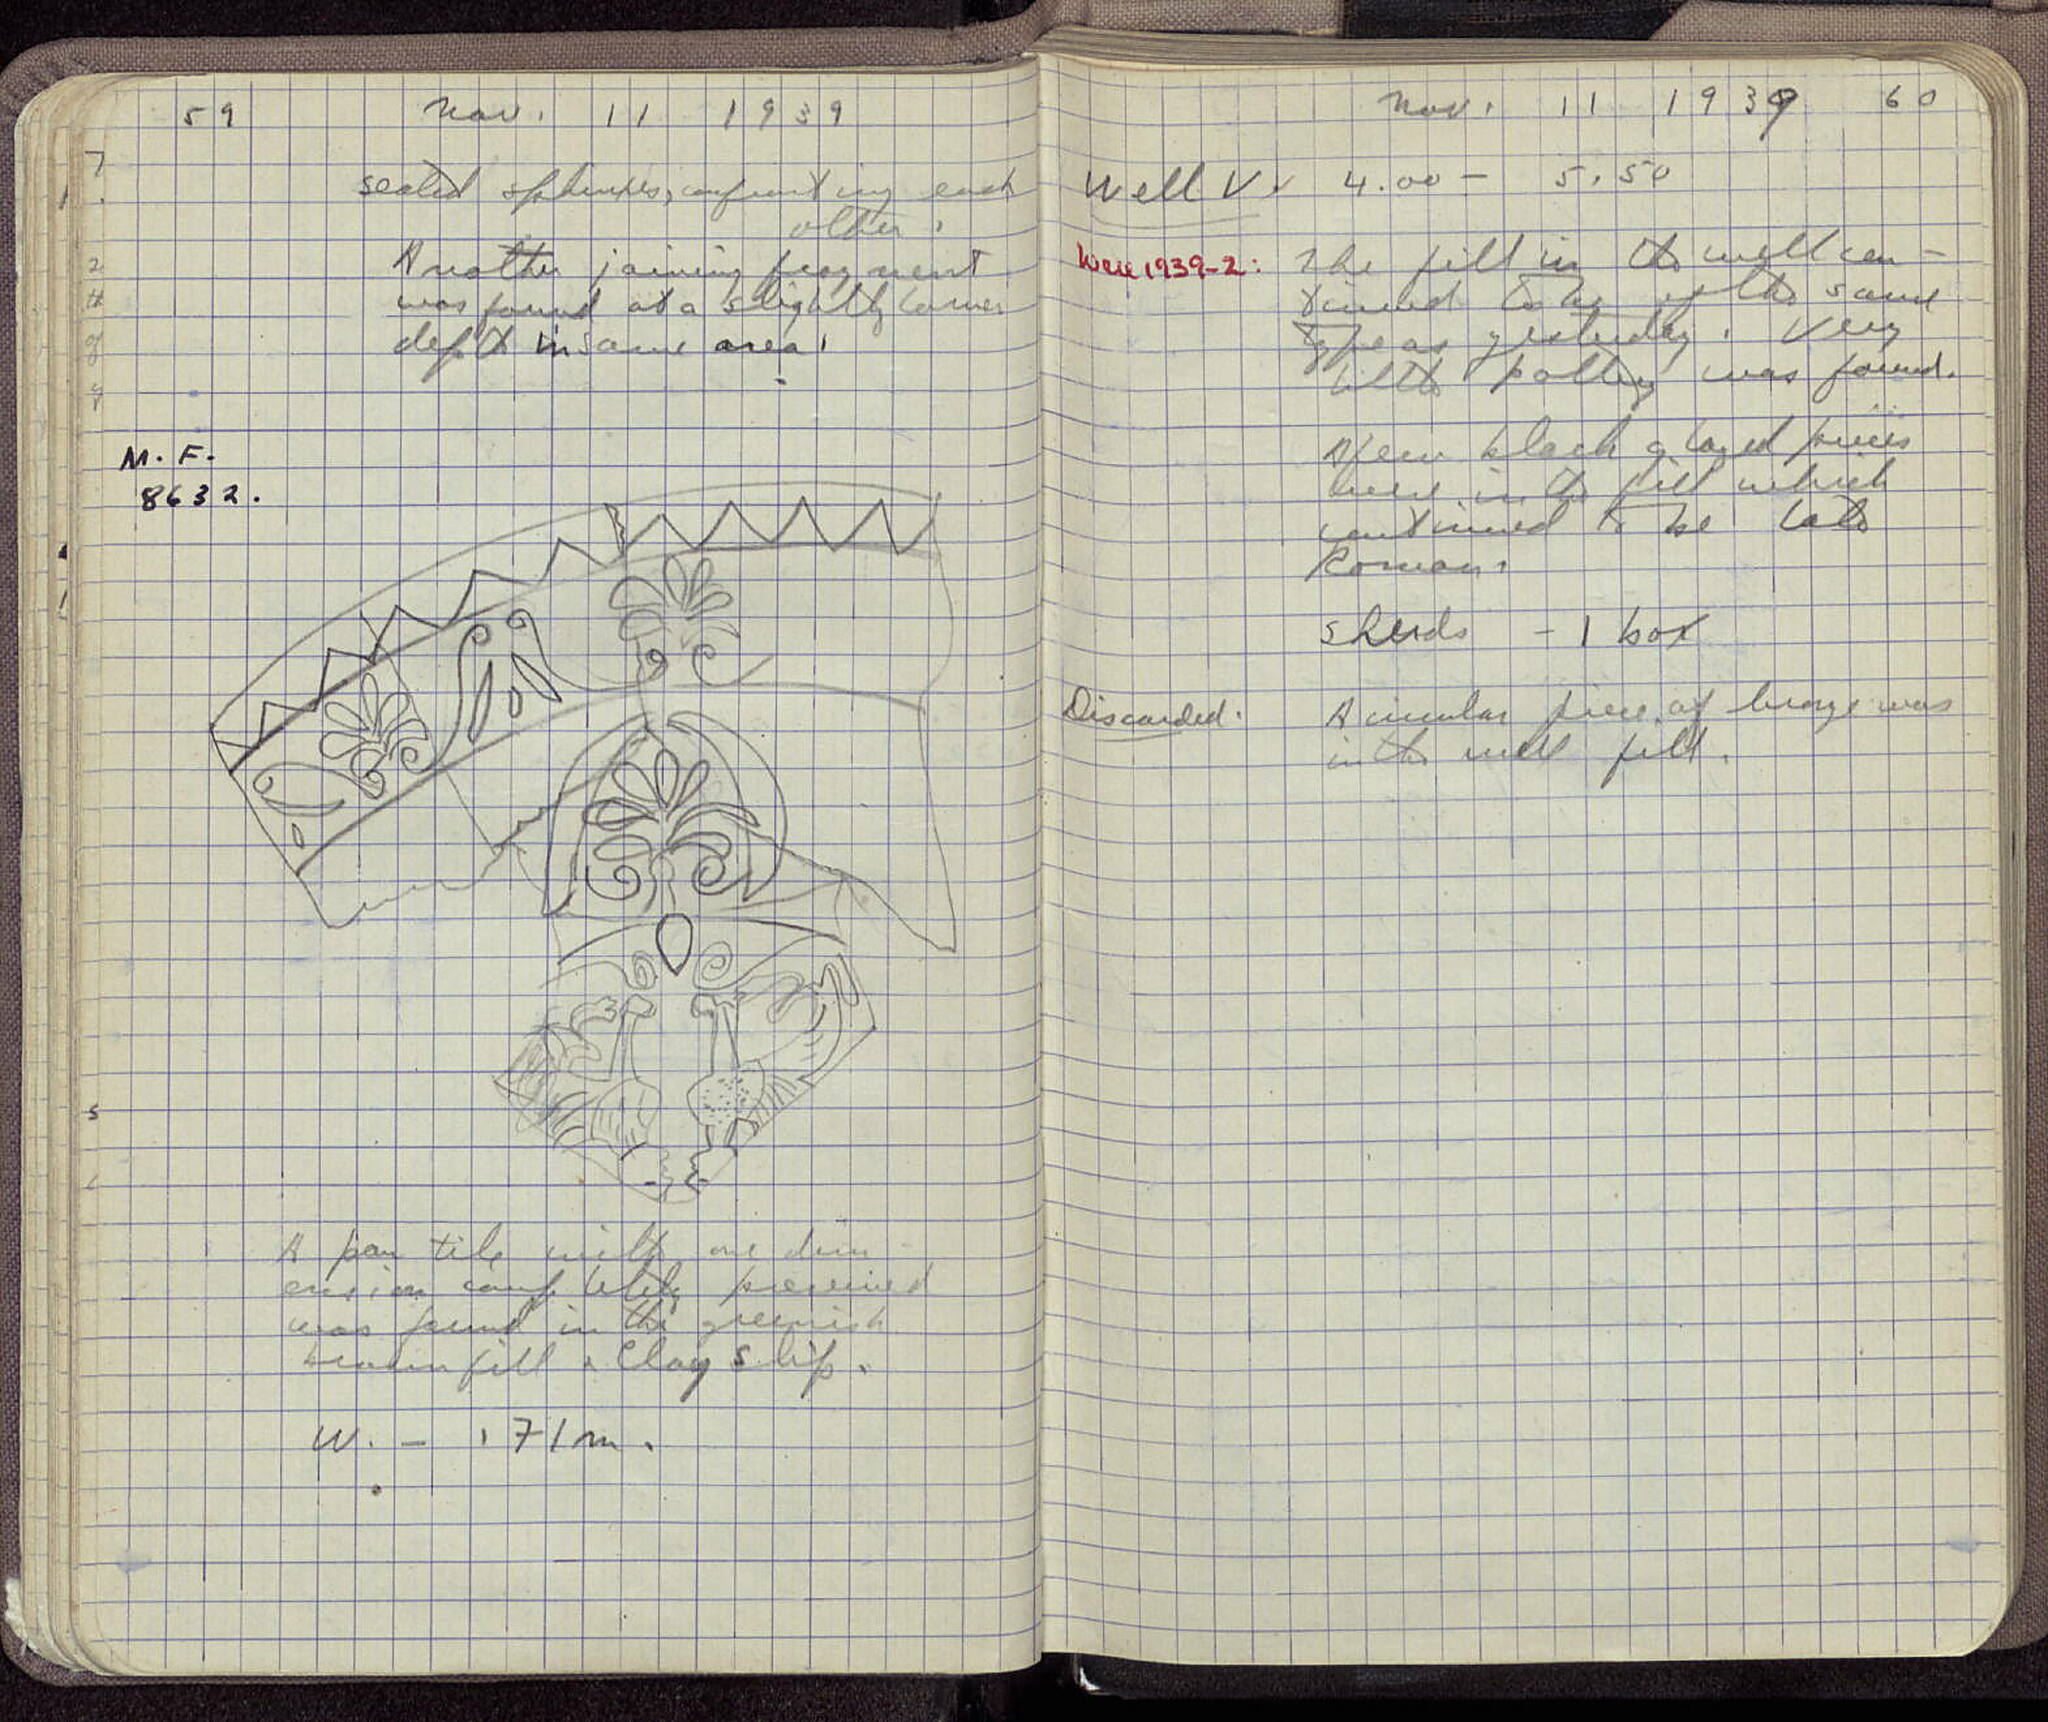 59 Nov. 11 1939
seated sphinxes, confronting each
other.
Another joining fragment
was found at a slightly lower
depth in same area.
M. F.
8632.
A pan tile with one dim-
ension completely preserved
was found in the greenish
brown fill. Clay slip.
W. - .71 m.
Nov. 11 1939 60
Well V. 4.00 - 5.50
Well 1939-2: The fill in the well con-
tinued to be of the same
type as yesterday. Very
little pottery was found.
A few black glazed pieces
were in the fill which
continued to be late
Roman.
Sherds - 1 box
Discarded. A circular piece of bronze was
in the well fill.